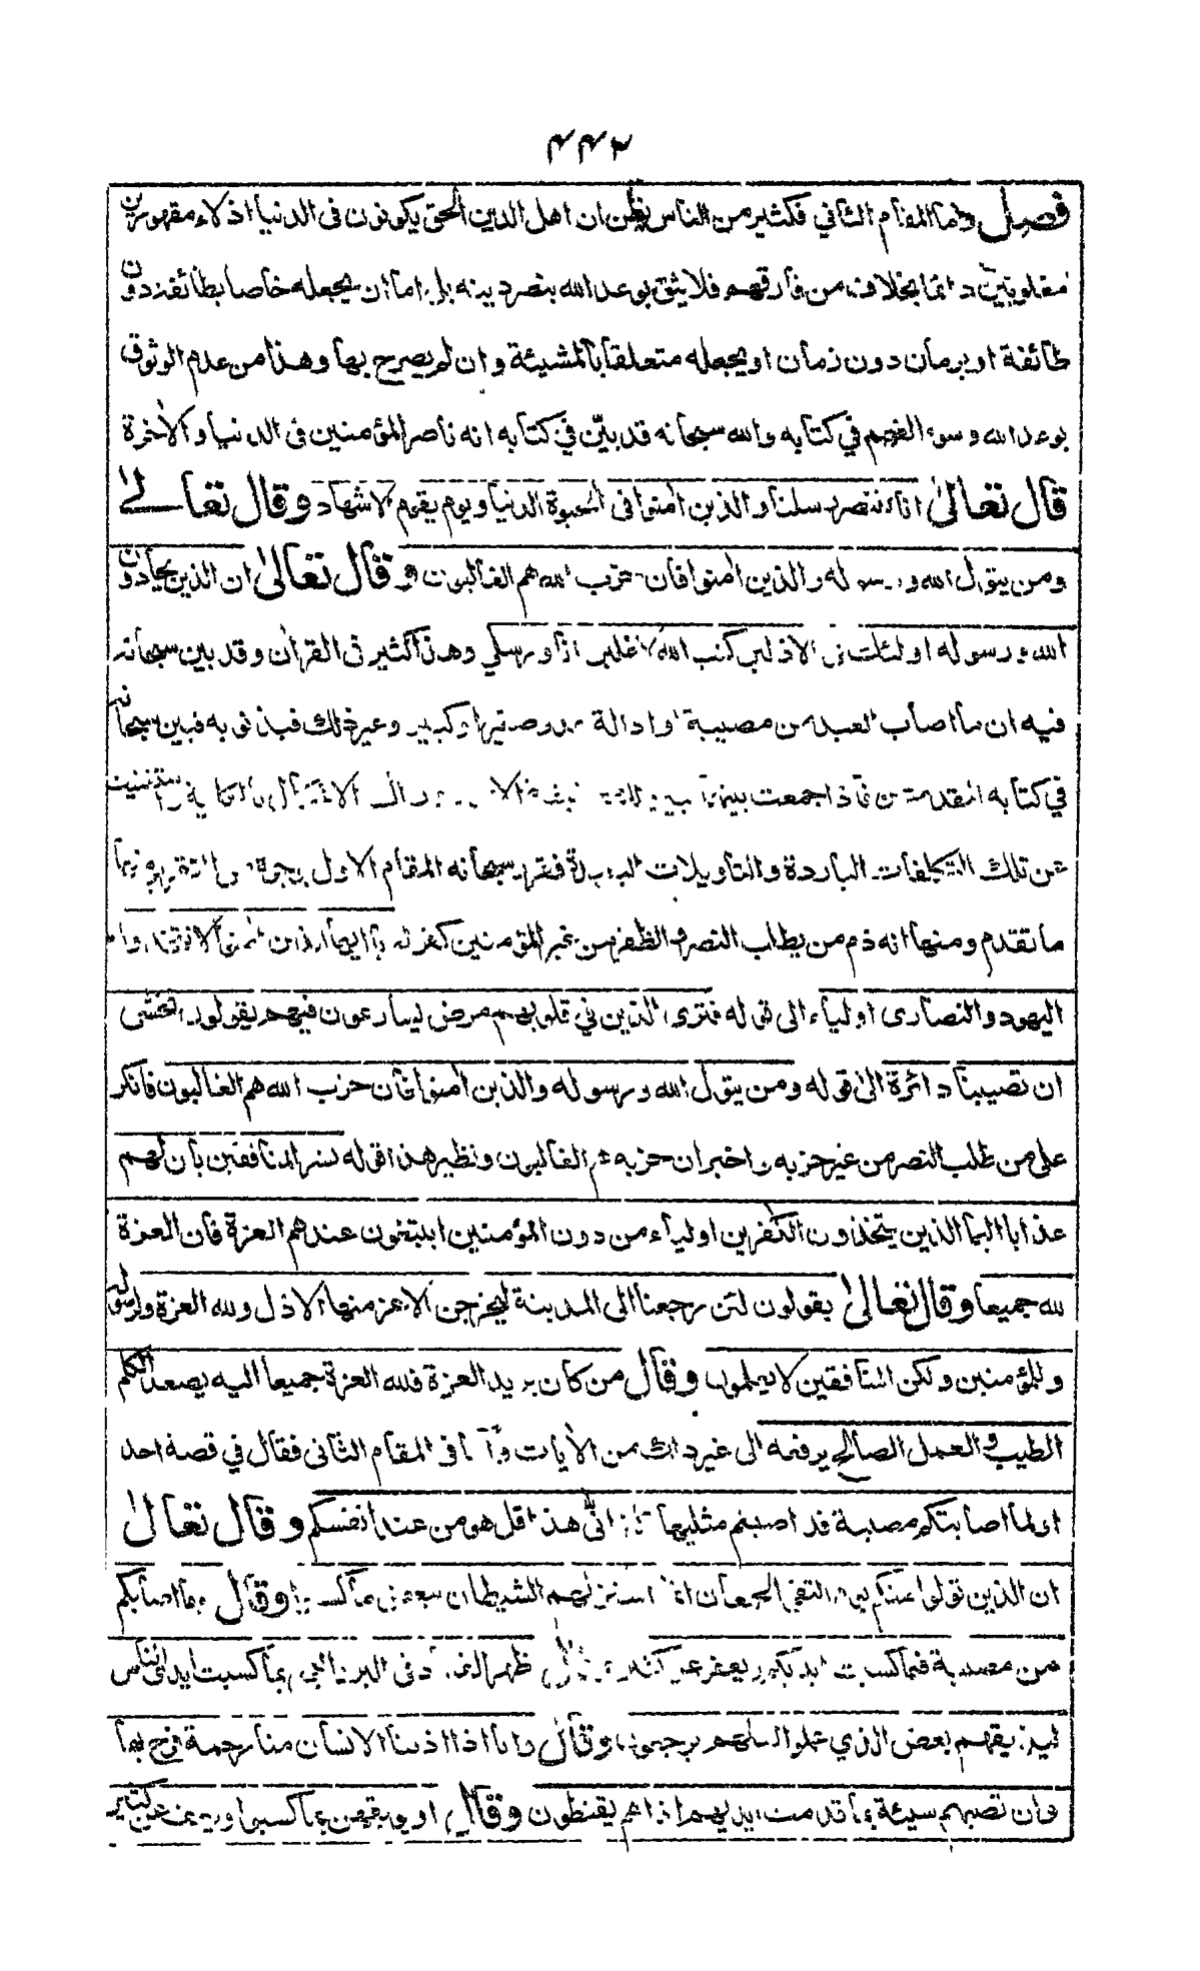 ۴۴۲
فصل واما المقام الثاني فكثير من الناس يظن ان اهل الدين الحق يكونون فى الدنيا اذلاء مقهورين
مغلوبين دائما بخلاف من فارقهم فلا يثق بوعد الله بنصر دينه بل اما ان يجعله خاصا بطائفة دون
طائفة او بزمان دون زمان او يجعله متعلقا بالمشيئة وان لم يصرح بها وهذا من عدم الوثوق
بوعد الله وسوء الفهم في كتابه والله سبحانه قد بيّن في كتابه انه ناصر المؤمنين فى الدنيا والاخرة
قال تعالىٰ انا لننصر رسلنا والذين اٰمنوا فى الحيوة الدنيا ويوم يقوم الاشهاد وقال تعالىٰ
ومن يتول الله ورسوله والذين اٰمنوا فان حزب الله هم الغالبون وقال تعالىٰ ان الذين يحادون
الله ورسوله اولئك فى الاذلين كتب الله لاغلبن انا ورسلي وهذا كثير فى القراٰن وقد بين سبحانه
فيه ان ما اصاب العبد من مصيبة او ادالة عدو صغير او كبير وغير ذلك فبذنوبه فبين سبحانه
في كتابه المقدمتين فاذا جمعت بينهما
عن تلك التكلفات الباردة والتاويلات البعيدة فقرر سبحانه المقام الاول بوجوه منها
ما تقدم ومنها انه ذم من يطلب النصر والظفر من غير المؤمنين كقوله يا ايها الذين اٰمنوا لا تتخذوا
اليهود والنصارى اولياء الى قوله فترى الذين في قلوبهم مرض يسارعون فيهم يقولون نخشى
ان تصيبنا دائرة الى قوله ومن يتول الله ورسوله والذين اٰمنوا فان حزب الله هم الغالبون فانكر
على من طلب النصر من غير حزبه واخبر ان حزبه هم الغالبون ونظير هذا قوله بشر المنافقين بان لهم
عذابا اليما الذين يتخذون الكٰفرين اولياء من دون المؤمنين ايبتغون عندهم العزة فان العزة
لله جميعا وقال تعالىٰ يقولون لئن رجعنا الى المدينة ليخرجن الاعز منها الاذل ولله العزة ولرسوله
وللمؤمنين ولكن المنافقين لا يعلمون وقال من كان يريد العزة فلله العزة جميعا اليه يصعد الكلم
الطيب والعمل الصالح يرفعه الى غير ذلك من الاٰيات واما فى المقام الثانى فقال في قصة احد
اولما اصابتكم مصيبة قد اصبتم مثليها قلتم انّٰى هذا قل هو من عند انفسكم وقال تعالىٰ
ان الذين تولوا منكم يوم التقى الجمعان انما استزلهم الشيطان ببعض ما كسبوا وقال وما اصابكم
من مصيبة فبما كسبت ايديكم ويعفو عن كثير وقال ظهر الفساد فى البر والبحر بما كسبت ايدى الناس
ليذيقهم بعض الذي عملوا لعلهم يرجعون وقال وانا اذا اذقنا الانسان منا رحمة فرح بها
وان تصبهم سيئة بما قدمت ايديهم اذا هم يقنطون وقال او يوبقهن بما كسبوا ويعف عن كثير